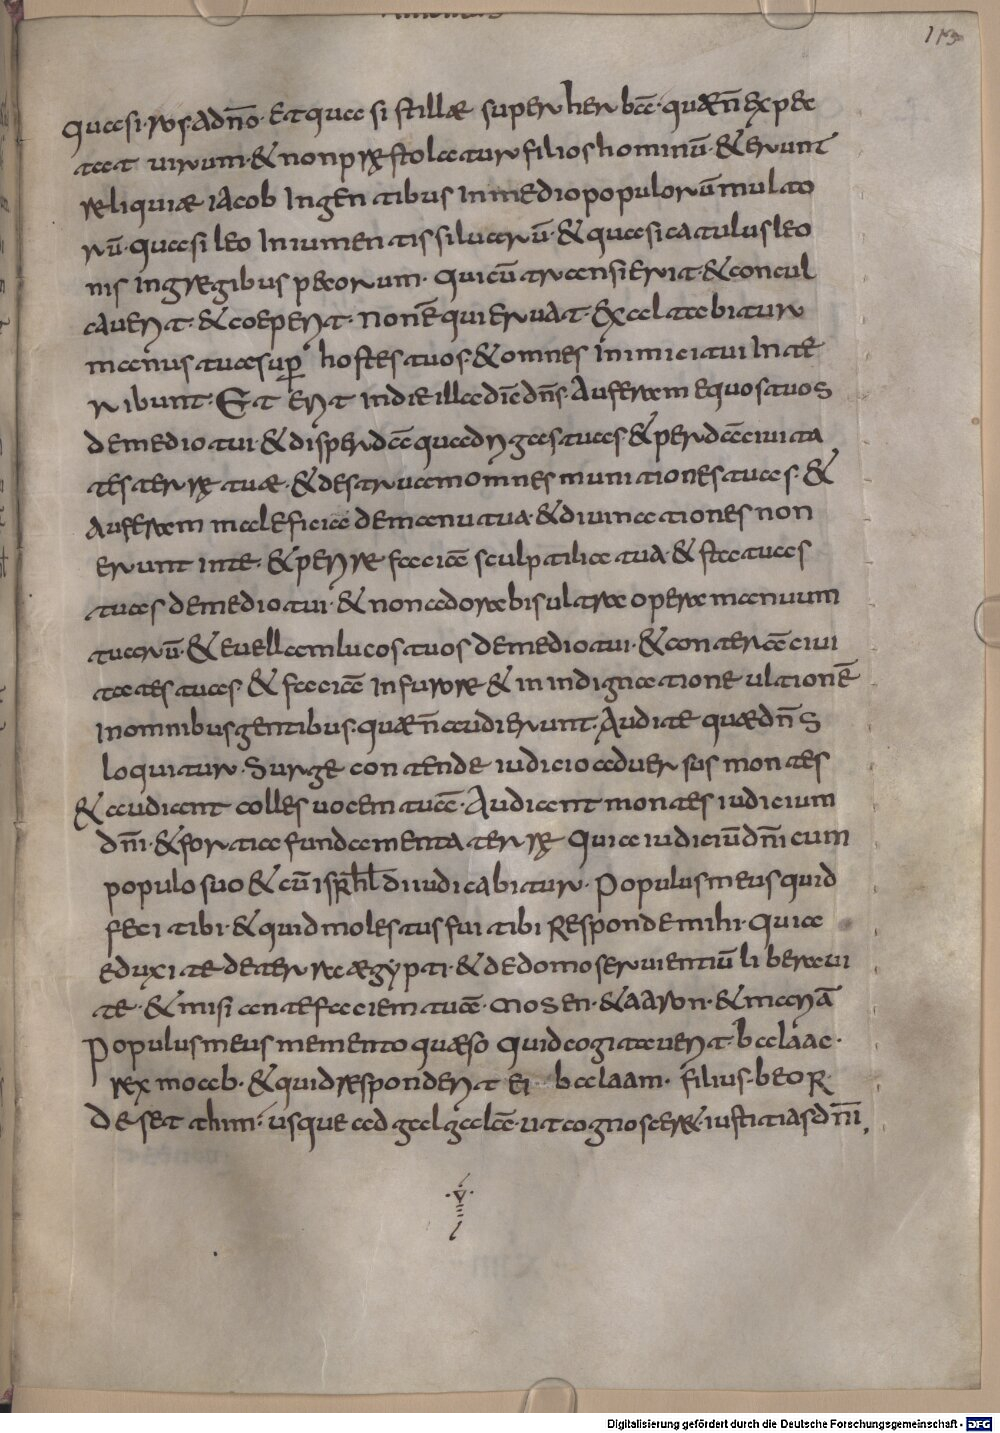 113
quasi ros adn̄o· Etquasi stillae super herbā· quaen̄ expec
tat uirum· & nonpręstolatur filioshominū· & erunt
reliquiae iacob Ingentibus Inmediopopulorūmulto
rū· quasi leo Iniumentissiluarū· & quasicatulusleo
nis Ingregibus pecorum· quicū transierit· & concul
cauerit· & coeperit· nonē quieruat· Exaltabitur
manus tuasup̄ hostestuos· & omnes Inimicitui Inte
ribunt· Et erit Indieilladīcdn̄s· Auferam equostuos
demediotui· & disperdāquadrigastuas· & perdāciuita
testerrę tuae· & destruamomnesmunitionestuas· &
Auferam maleficia demanutua· & diuinationes non
erunt inte· & perire faciā sculptiliatua· & statuas
tuas demediotui· & nonadorabisultraoperamanuum
tuarū· & euellamlucostuos demediotui· & conterāciui
tatestuas· & faciā Infurore & inindignationeultionē
Inomnibusgentibus· quaen̄audierunt· Auditequaedn̄s
loquitur· Surge contende iudicioaduersusmontes
& audiant colles uocemtuā· Audiantmontesiudicium
dn̄i· & fortiafundamenta terrę Quiaiudiciūdn̄icum
populosuo & cū isrhl̄ diiudicabitur· Populusmeusquid
feci tibi· & quidmolestusfui tibi Respondemihi· Quia
eduxi te deterra aegypti· & dedomoseruientiū liberaui
te· & misi antefaciemtuā· mosen· & aaron· & mariā
Populusmeusmementoquaeso Quidcogitauerit· balaac·
rex moab· & quidresponderit ei balaam· filius· beor·
Desetthim· usque adgalgalā· utcognoscere· iustitiasdn̄i,
Digitalisierung gefördert durch die Deutsche Forschungsgemeinschaft - DFG